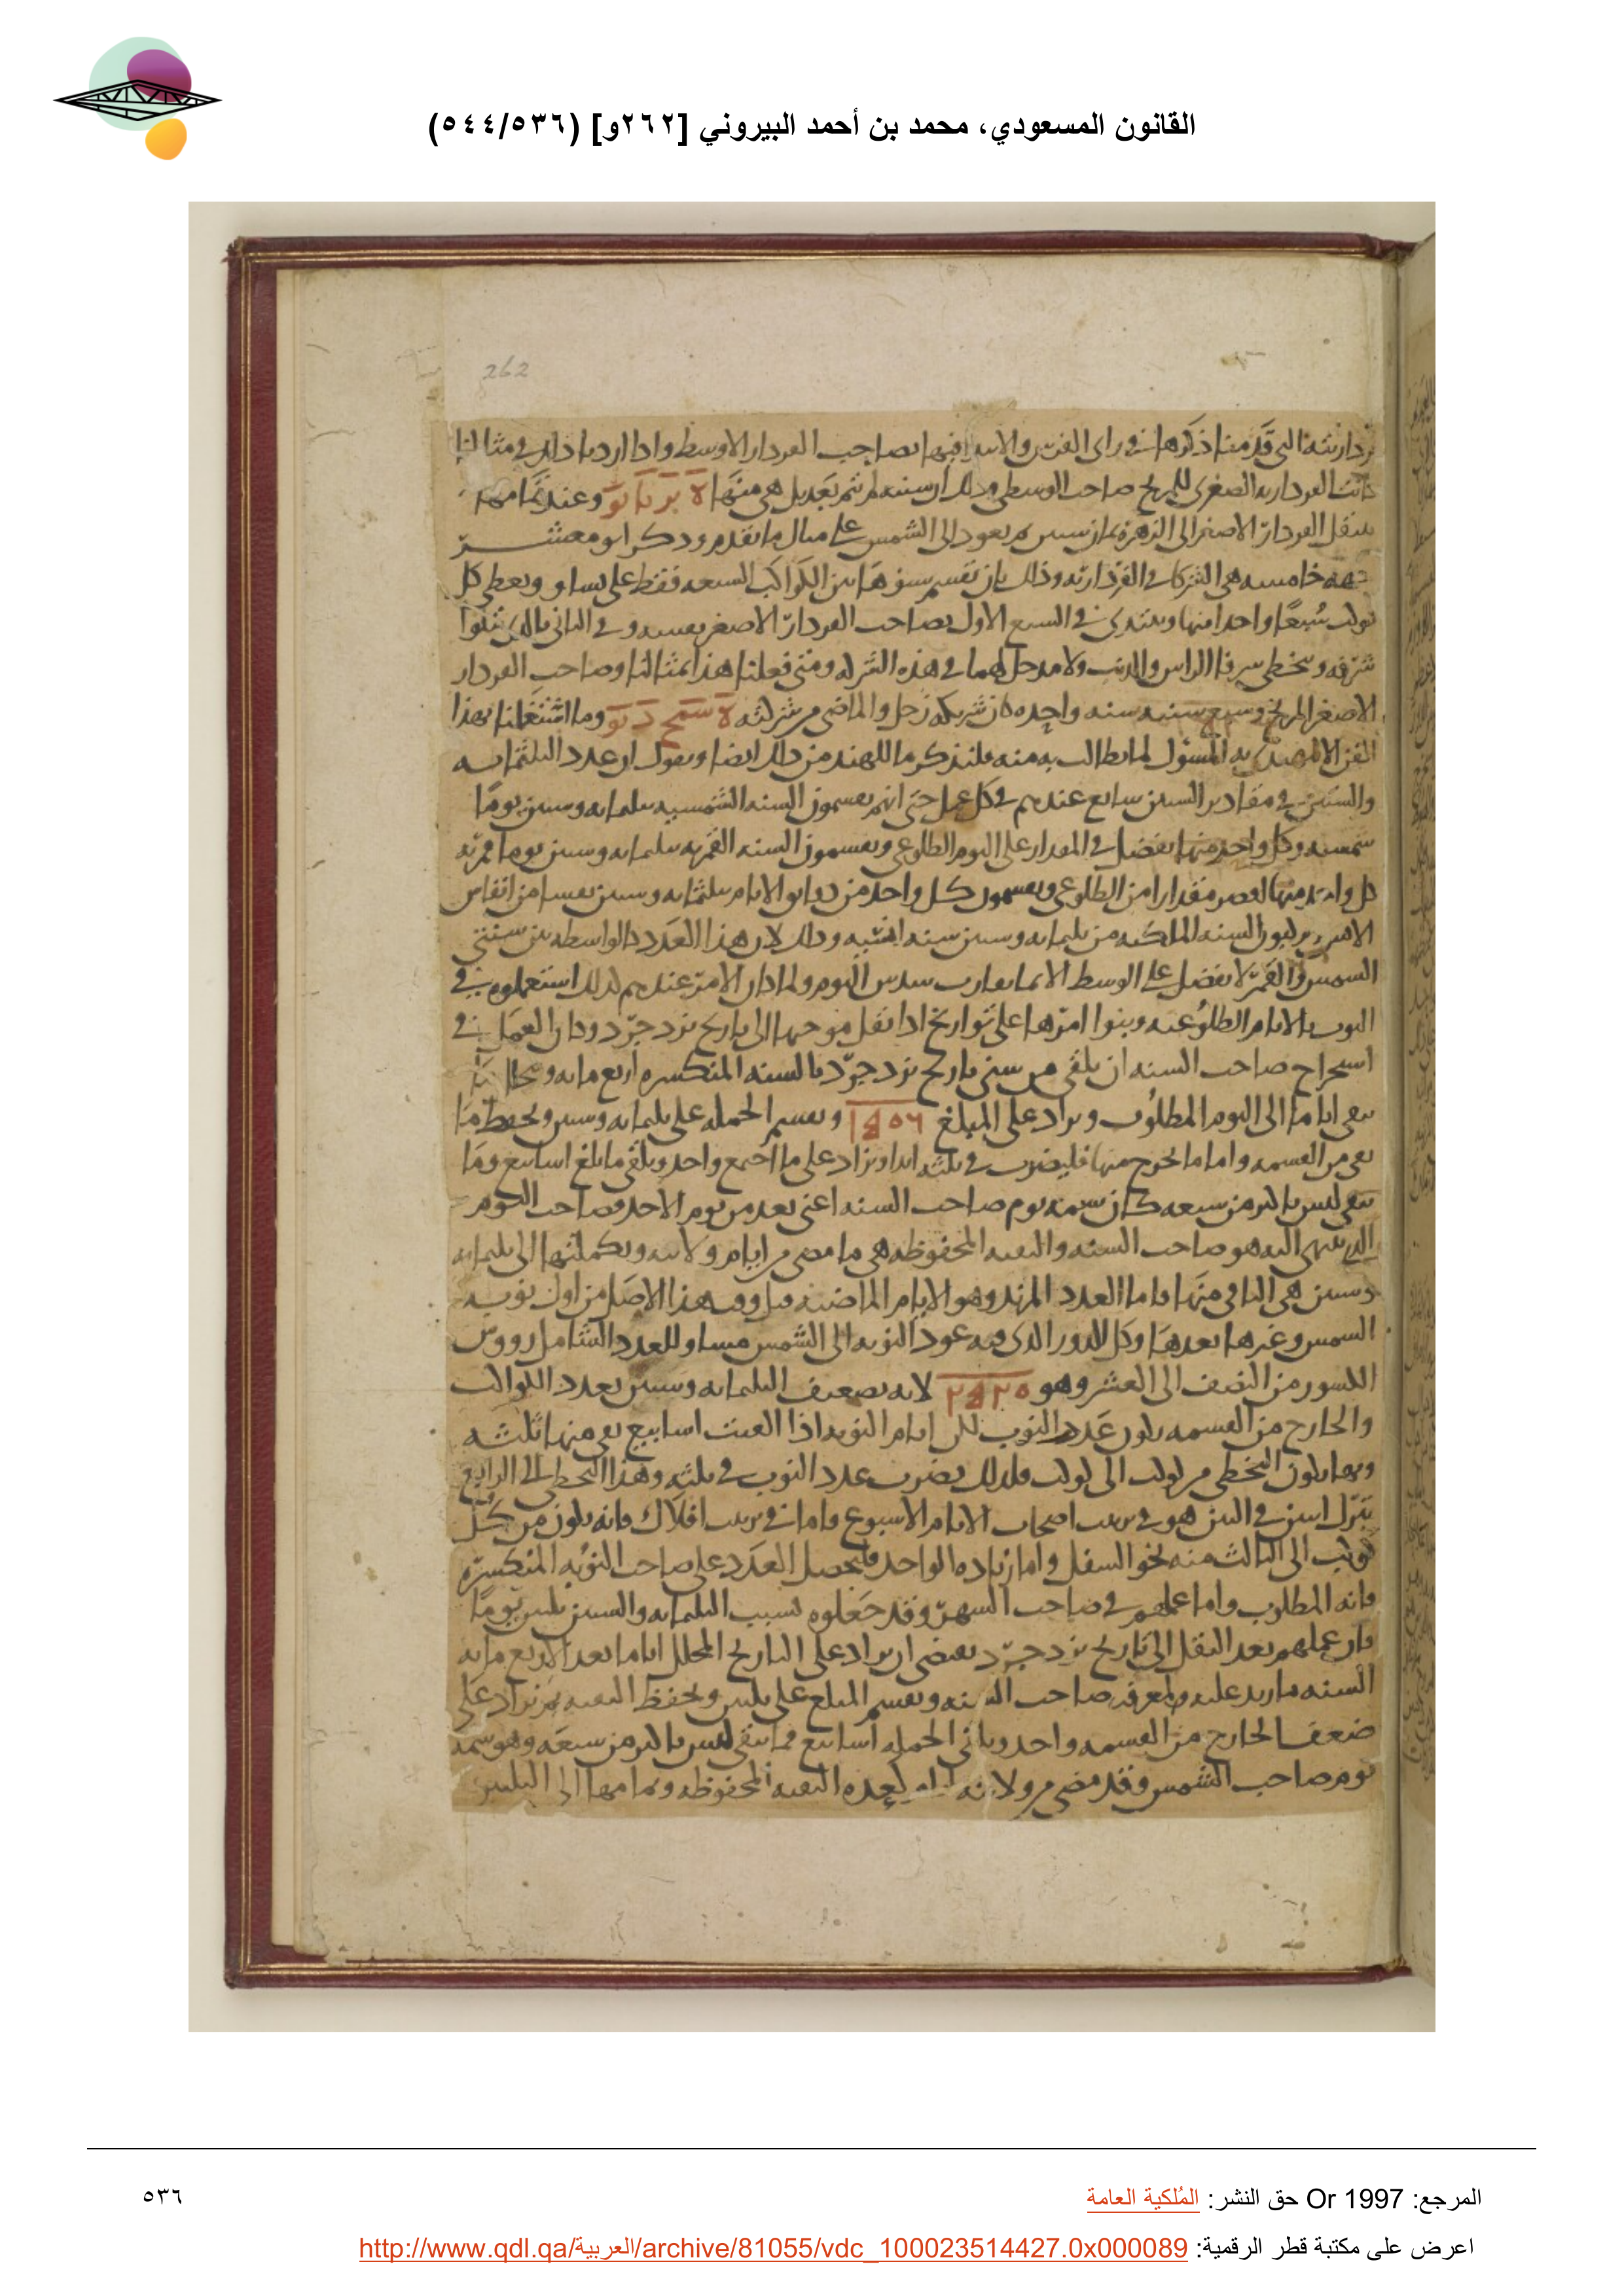 القانون المسعودي، محمد بن أحمد البيروني [٢٦٢و] (٥٤٤/٥٣٦)
262
التي قدمنا ذكرها في راى الفرس والابتدا فيها بصاحب الفردار الاوسط واذا اردنا ذلك في مثالنا
كانت الفردارية الصغرى للمريخ صاحب الوسطى وذلك ان سنته لم تتم بعد بل هي منها وعند تمامها
ينتقل الفردار الاصغر الى الزهرة ثمان سنين ثم يعود الى الشمس على مثال ما تقدم وذكر ابو معشر
خامسه هي الشركا في الفردارية وذلك بان تقسم سنوها بين الكواكب السبعه فقط على تساو ويعطى كل
كوكب سبعا واحدا منها ويبتدى في السبع الاول بصاحب الفردار الاصغر بعينه وفي الثاني بالذي يتلوا
شرفه وتخطى شرفا الراس والذنب ولا مدخل لهما في هذه الشركه ومتى فعلنا هذا بمثالنا وصاحب الفردار
الاصغر المريخ وسبع سنيه سنه واحده كان شريكه زحل والماضى من شركته وما اشتغلنا بهذا
الفن الا المسؤل لما يطالب به منه فلنذكر ما للهند من ذلك ايضا ونقول ان عدد الثلثمايه
والستين في مقادير السنين شايع عندهم في كل عمل حتى انهم يقسمون السنه الشمسيه بثلثمايه وستين يوما
شمسيه وكل واحد منها يفضل في المقدار على اليوم الطلوعى ويقسمون السنه القمريه بثلثمايه وستين يوما قمريه
كل واحد منها انقص مقدارا من الطلوعى ويقسمون كل واحد من الايام بثلثمايه وستين نفسا من انفاس
السنه من ثلثمايه وستين سنه وذلك لان هذا العدد كالواسطه بين سنتى
الشمس والقمر لا يفضل على الوسط الا بما يقارب سدس اليوم ولما كان الامر عندهم كذلك استعملوه في
النوب بالايام الطلوعيه وبنوا امرها على تواريخ اذا نقل موجبها الى تاريخ يزدجرد وكان العمل في
استخراج صاحب السنه ان يلقى من سنى تاريخ يزدجرد بالسنه المنكسره اربع مايه
يبقى اياما الى اليوم المطلوب ويزاد على المبلغ ويقسم الجمله على ثلثمايه وستين ويحفظ ما
بقى من القسمه واما ما يخرج منها فليضرب في ثلثه ابدا ويزاد على ما اجتمع واحد ويلقى ما بلغ اسابيع وما
يبقى ليس باكثر من سبعه كان سمه يوم صاحب السنه اعنى بعده من يوم الاحد وصاحب اليوم
الذي ينتهى اليه هو صاحب السنه والبقيه المحفوظه هي ما مضى من ايام ولايته وتكملتها الى ثلثمايه
وستين هي الباقى منها فاما العدد المزيد وهو الايام الماضيه قبل وقت هذا الاصل من اول نوبه
الشمس وغيرها بعدها وكل الدور الذى فيه عود النوبه الى الشمس مساو للعدد الشامل رووس
الكسور من النصف الى العشر وهو ٢٥٢٠ لانه تضعيف الثلثمايه وستين بعدد الكواكب
والخارج من القسمه يكون عدد النوب لكن ايام النوبه اذا القيت اسابيع بقى منها ثلثه
وبها يكون التخطى من كوكب الى كوكب فلذلك يضرب عدد النوب في ثلثه وهذا التخطى الى الرابع
بترك اثنين في البين هو في ترتيب اصحاب الايام الاسبوع واما في ترتيب افلاك فانه يكون من كل
كوكب الى الثالث منه نحو السفل واما زياده الواحد فليحصل العدد على صاحب النوبه المنكسره
فانه المطلوب واما عملهم في صاحب الشهر وقد جعلوه لسبب الثلثمايه والستين ثلثين يوما
فان عملهم بعد النقل الى تاريخ يزدجرد يقتضى ان يزاد على التاريخ المحلل اياما بعد الاربع مايه
السنه ما زيد عليه لمعرفه صاحب السنه ويقسم المبلغ على ثلثين ويحفظ البقيه ثم يزاد على
ضعف الخارج من القسمه واحد ويلقى الجمله اسابيع فما يبقى ليس باكثر من سبعه وهو سمه
يوم صاحب الشهر وقد مضى من ولايته ايام بعده البقيه المحفوظه وتمامها الى الثلثين
المرجع: Or 1997 حق النشر: المُلكية العامة
٥٣٦
اعرض على مكتبة قطر الرقمية: http://www.qdl.qa/العربية/archive/81055/vdc_100023514427.0x000089